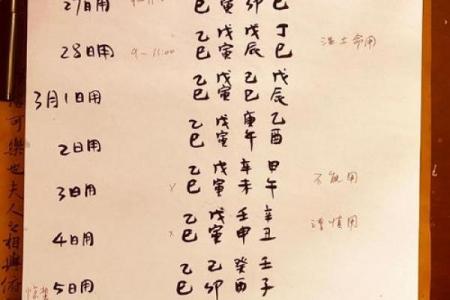 27日用 巳 寅 卯 巳
乙 戊 戊 丁
28日用 9-11:00 巳 寅 辰 巳 湿土命用
乙 戊 己 戊
3月1日用 巳 寅 巳 辰
乙 戊 庚 乙
2日用 巳 寅 午 酉
乙 戊 辛 甲
3日用 x 巳 寅 未 午 不能用
乙 戊 壬 辛
4日用 x 巳 寅 申 丑 谨慎用
乙 己 癸 壬
5日用 巳 卯 酉 子
惊蛰
可樂也夫人之相與俯